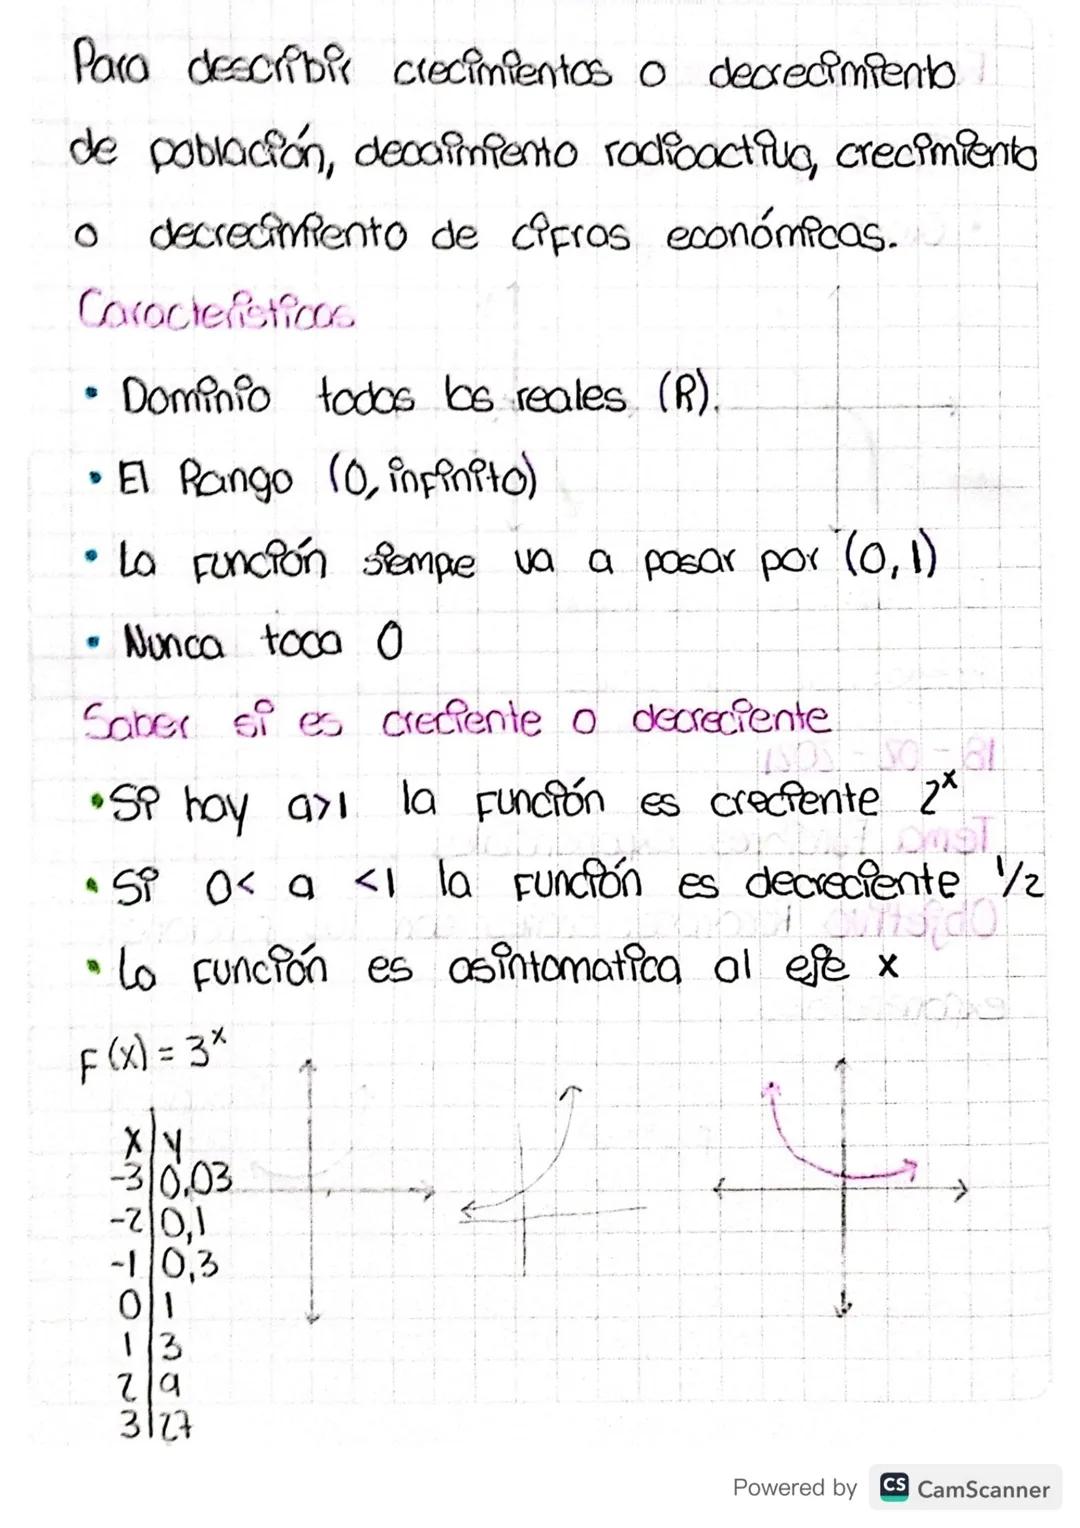 Para describir crecimientos o decrecimiento
de población, decaimiento radioactiva, crecimiento
o decrecimiento de cifras económicas.
Características
• Dominio todos los reales (R).
• El Rango (0, infinito)
• La función siempe va a pasar por (0,1)
• Nunca toca 0
Saber si es creciente o decreciente
• Si hay a>1 la función es creciente 2ˣ
• Si 0< a <1 la función es decreciente 1/2
• La función es asintomatica al eje x
F(x) = 3ˣ
x|y
-3|0,03
-2|0,1
-1|0,3
0|1
1|3
2|9
3|27
Powered by CS CamScanner